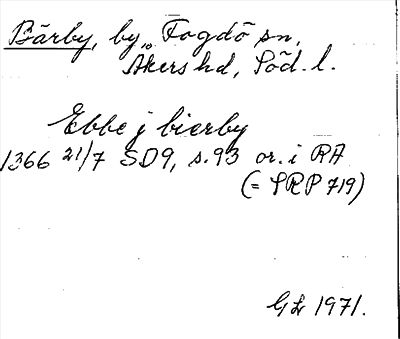 Bärby, by, Fogdö sn,
Åkers hd, Söd. l.
Ebbe j bierby
1366 21/7 SD9, s. 93 or. i RA
(= SRP 719)
GL 1971.